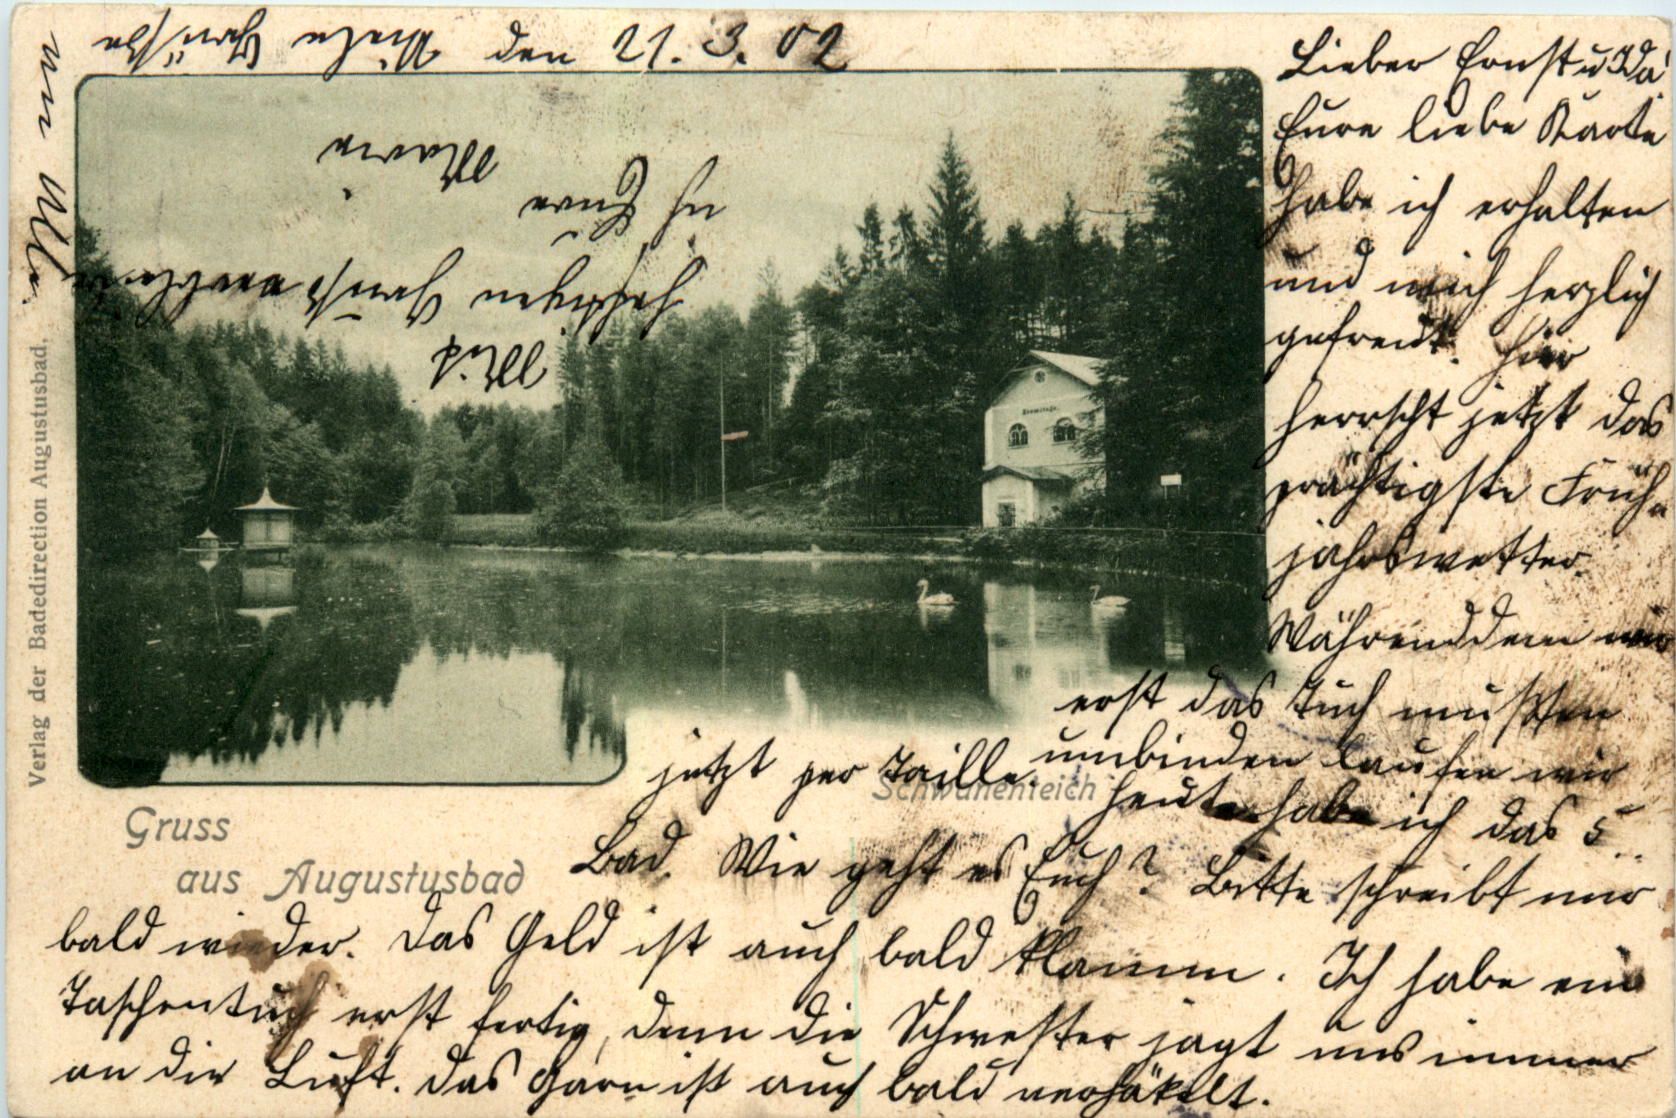 den 21. 3. 02
Lieber Ernst u Ida!
Eure liebe Karte
habe ich erhalten
und mich herzlich
gefreut. Hier
herrscht jetzt das
prächtigste Früh-
jahrswetter.
Währenddem wir
erst das Tuch mußten
umbinden laufen wir
jetzt per Taille
heute habe ich das 5.
Bad. Wie geht es Euch? Bitte schreibt mir
bald wieder. Das Geld ist auch bald klamm. Ich habe ein
Taschentuch erst fertig, denn die Schwester jagt uns immer
an die Luft. Das Garn ist auch bald verhäkelt.
Viele Grüße
an Alle.
Mit
herzlichen Grüßen verbleibe
ich Eure
Marie
Eremitage.
Schwanenteich
Gruss
aus Augustusbad
Verlag der Badedirection Augustusbad.